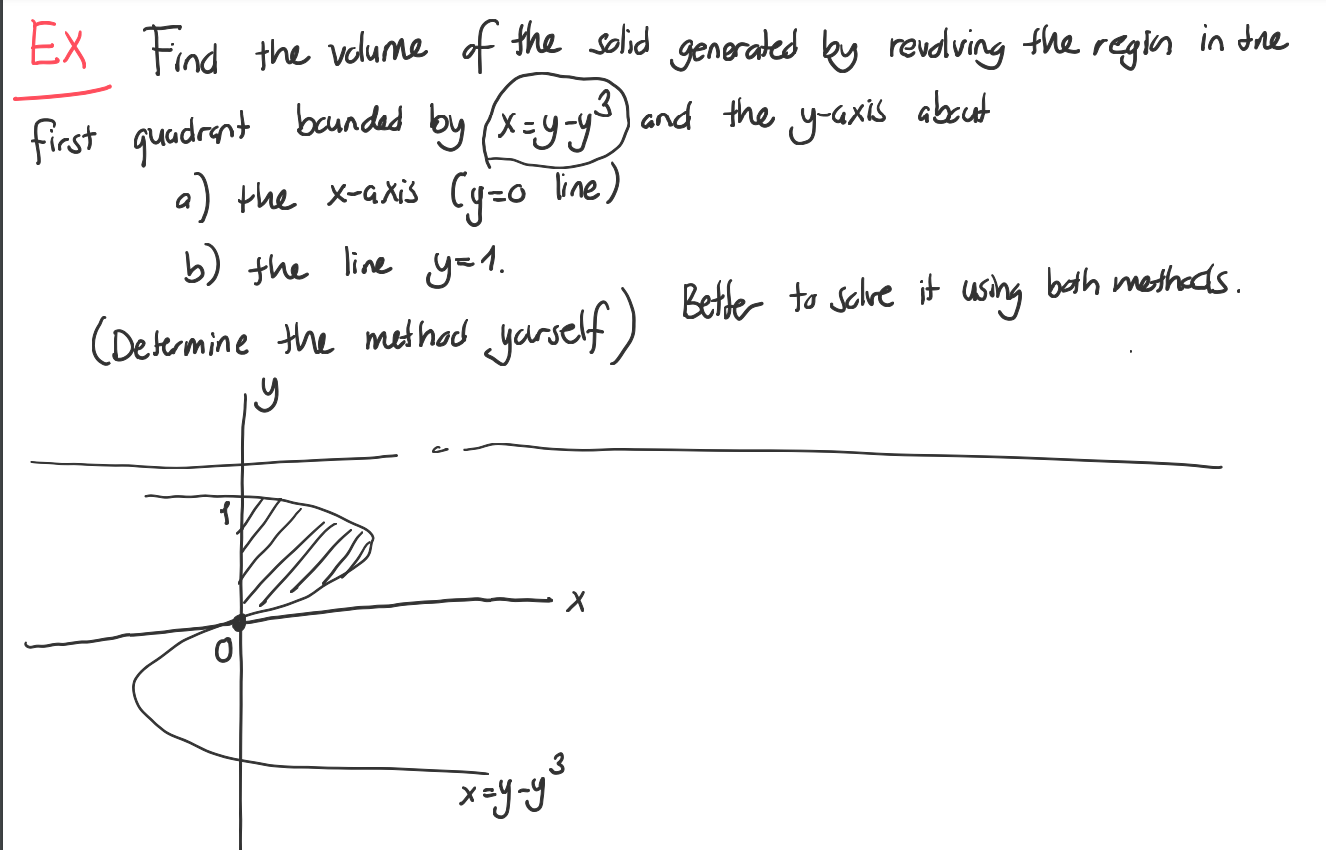 EX Find the volume of the solid generated by revolving the region in the
first quadrant bounded by x=y-y³ and the y-axis about
a) the x-axis (y=0 line)
b) the line y=1.
(Determine the method yourself) Better to solve it using both methods.
y
1
x
0
x=y-y³